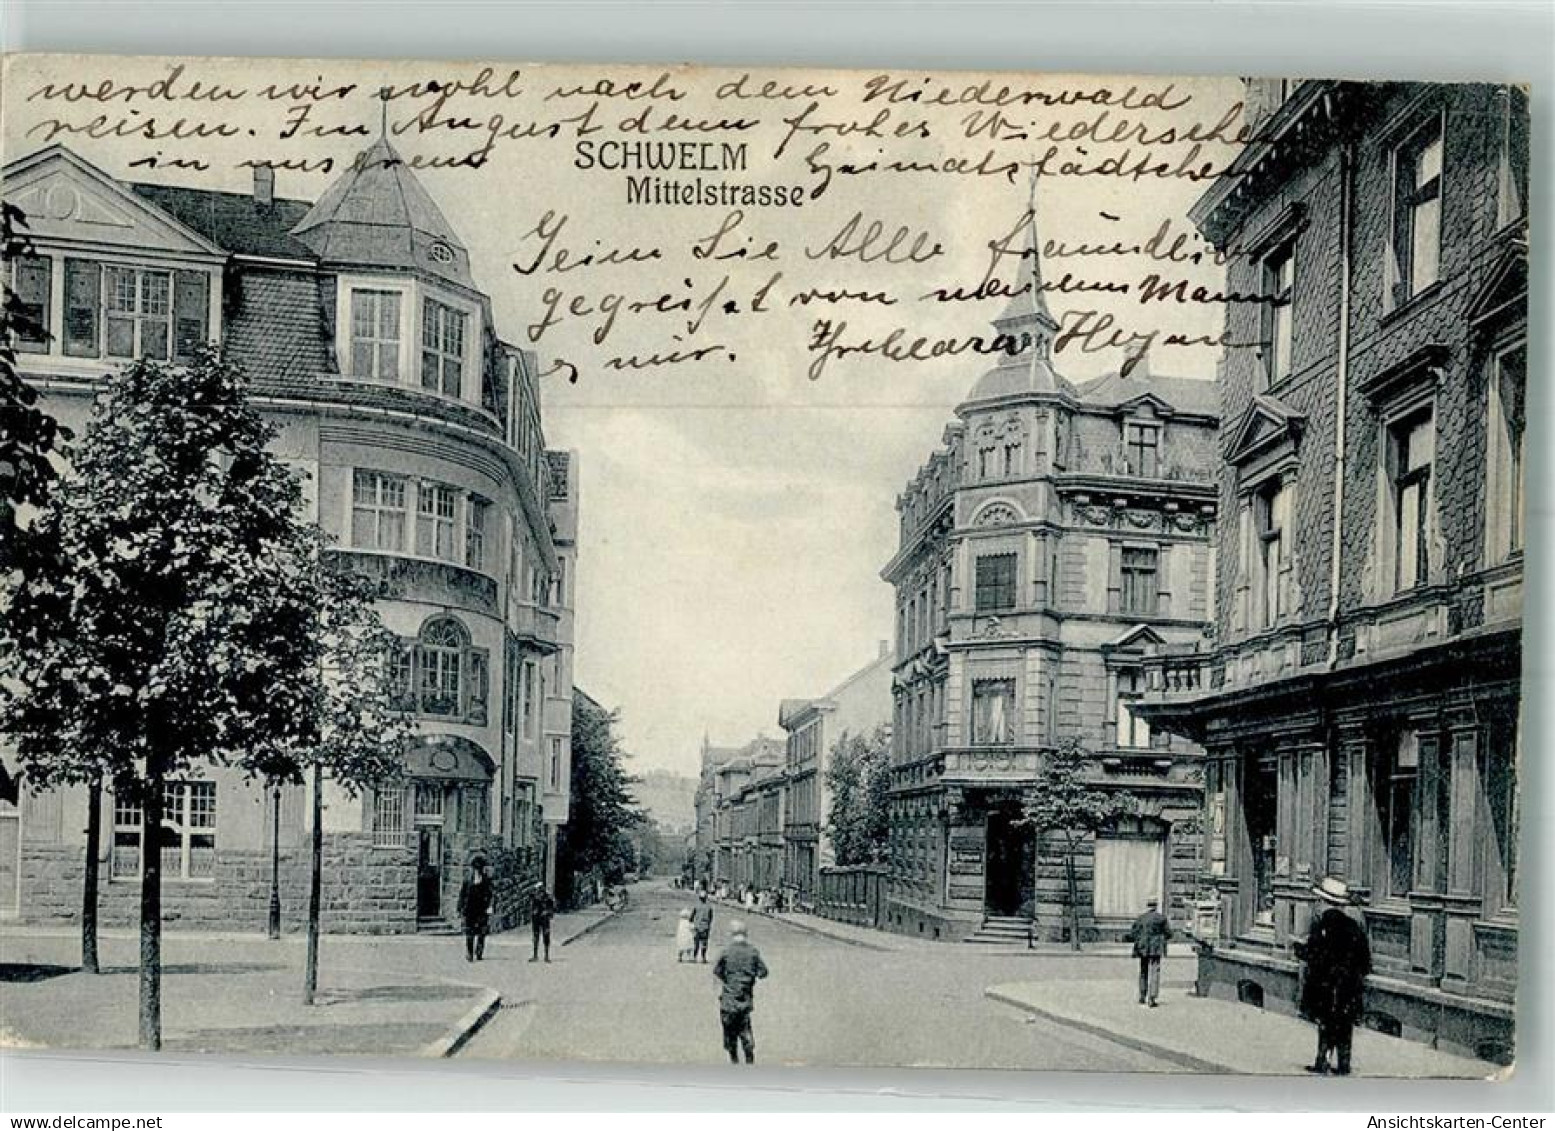 werden wir wohl nach dem Niederwald
reisen. Im August denn frohes Wiedersehen
in unserem Heimatstädtchen
SCHWELM
Mittelstrasse
Seien Sie Alle freundlich
gegrüsst von meinem Mann
u mir. Ihre
Ansichtskarten-Center